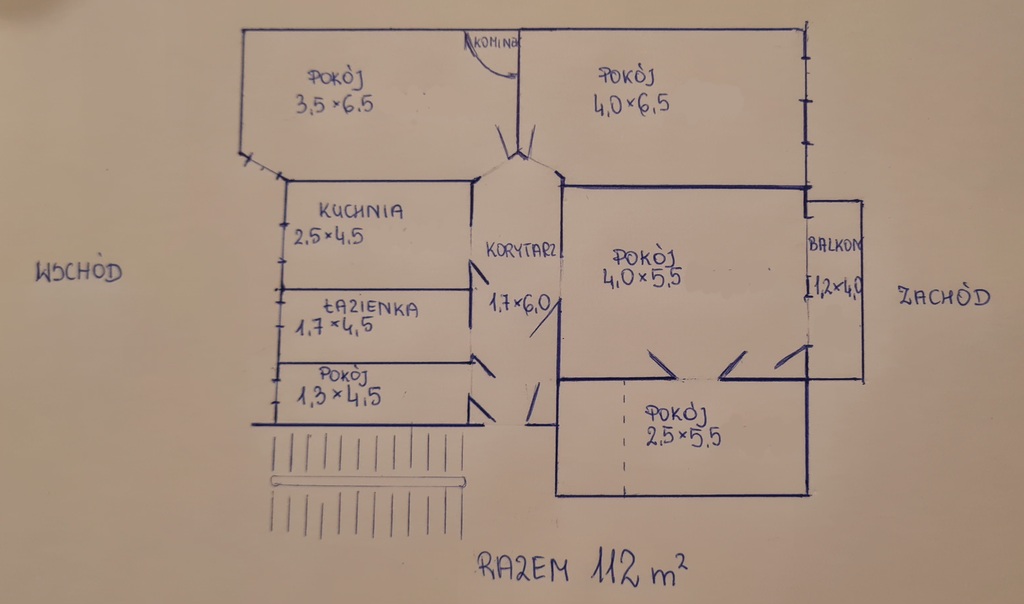 KOMINEK
POKÓJ
3,5 × 6,5
POKÓJ
4,0 × 6,5
KUCHNIA
2,5 × 4,5
KORYTARZ
1,7 × 6,0
POKÓJ
4,0 × 5,5
BALKON
1,2 × 4,0
WSCHÓD
ZACHÓD
ŁAZIENKA
1,7 × 4,5
POKÓJ
1,3 × 4,5
POKÓJ
2,5 × 5,5
RAZEM 112 m²